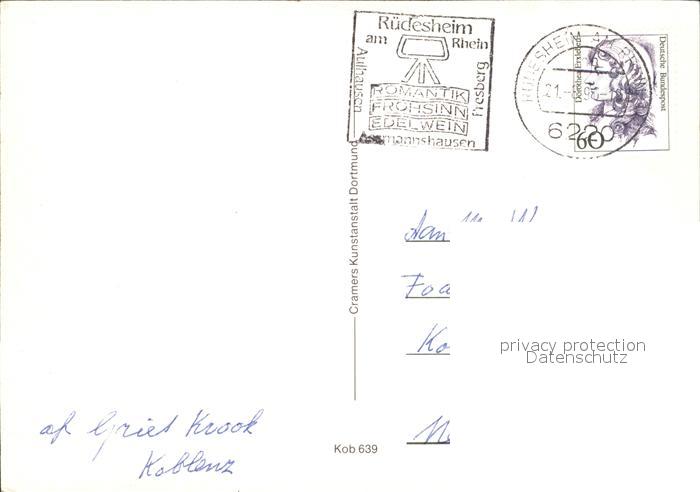 Rüdesheim
am Rhein
Aulhausen
Presberg
ROMANTIK
FROHSINN
EDELWEIN
Assmannshausen
RÜDESHEIM AM RHEIN
21.-8.
6220
Deutsche Bundespost
60
Cramers Kunstanstalt Dortmund
Aan
privacy protection
Datenschutz
af Griet Krook
Koblenz
Kob 639